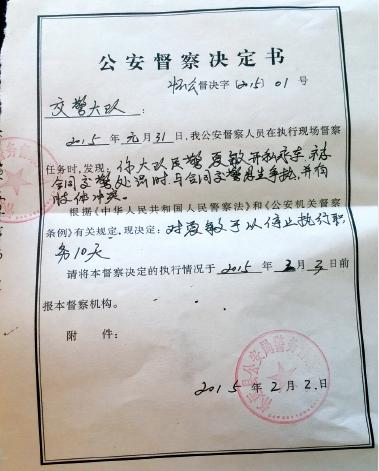 公安督察决定书
公督决字(2015)01号
交警大队:
2015年元月31日,我公安督察人员在执行现场督察
任务时,发现:你大队民警夏敏开私家车,
合同交警处酒时与合同交警发生争执,并有
肢体冲突。
根据《中华人民共和国人民警察法》和《公安机关督察
条例》有关规定,现决定:对夏敏予以停止执行职
务10天
请将本督察决定的执行情况于2015年2月3日前
报本督察机构。
附件:
2015年2月2日
县公安局警务